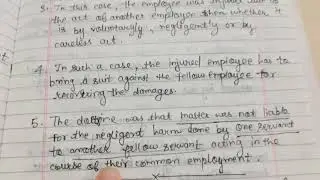 3. In this case, the employee was injured due to
the act of another employee then whether it
is by voluntarily, negligently or by
careless act.
4. In such a case, the injured employee has to
bring a suit against the fellow employee for
recovering the damages.
5. The was that master was not liable
for the negligent harm done by one servant
to another fellow servant acting in the
course of their common employment.